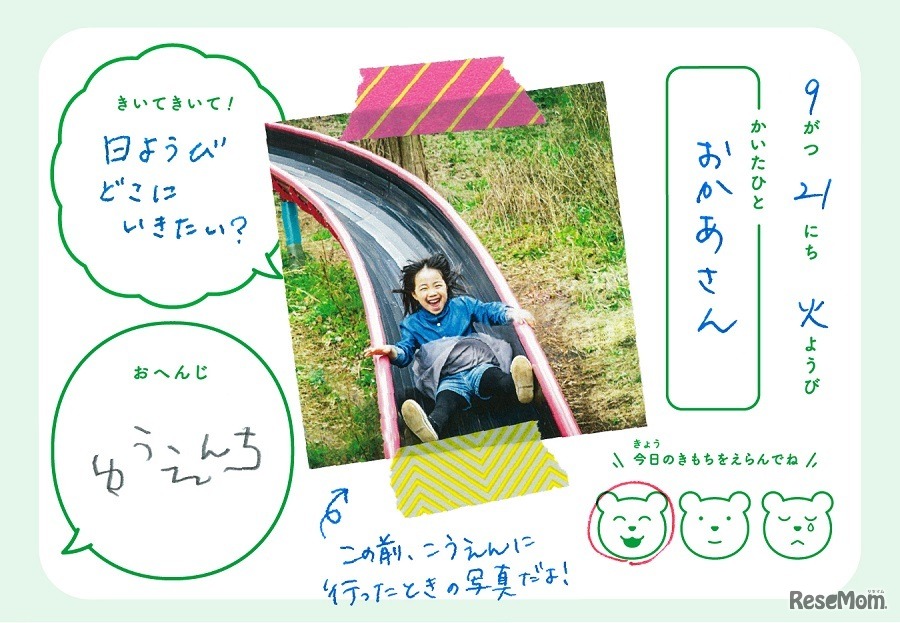 9がつ21にち 火ようび
かいたひと
おかあさん
きいてきいて!
日ようび
どこに
いきたい?
おへんじ
ゆうえんち
この前、こうえんに
行ったときの写真だよ!
きょう
今日のきもちをえらんでね
リセマム
ReseMom